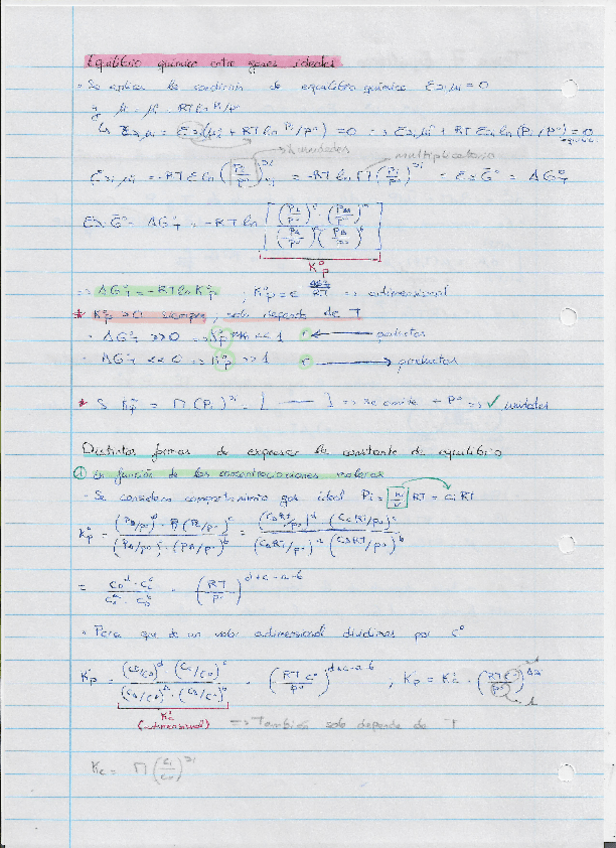 Equilibrio químico entre gases ideales
- Se aplica la condición de equilibrio químico Σνiμi = 0
y μ = μ° RT ln Pi/P°
↳ Σνiμi = Σνi(μi° + RT ln Pi/P°) = 0 => Σνiμi° + RT Σνi ln (Pi/P°) = 0
multiplicatorio
Σνiμi° = -RT Σ ln (Pi/P°)^νi = -RT ln Π (Pi/P°)^νi = ΔG°T
ΔG°T = -RT ln
K°p
=> ΔG°T = -RT ln K°p ; K°p = e ΔG°T/RT => adimensional
* K°p > 0 siempre, solo depende de T
- ΔG°T >> 0 => K°p << 1 r ←
- ΔG°T << 0 => K°p >> 1 r → productos
* Si Kp = Π (Pi)^νi [ — ] => se omite P° => ✓ unidades
Distintas formas de expresar la constante de equilibrio
① En función de las concentraciones molares
- Se considera comportamiento gas ideal Pi = n/V RT = ci RT
K°p = (PD/P°)^d (Pc/P°)^c / (PA/P°)^a · (PB/P°)^b = (cDRT/P°)^d (ccRT/P°)^c / (cART/P°)^a (cBRT/P°)^b
= cD^d · cc^c / cA^a · cB^b · (RT/P°)^d+c-a-b
- Para que de un valor adimensional dividimos por c°
K°p = (cD/c°)^d (cc/c°)^c / (cA/c°)^a · (cB/c°)^b · (RT c°/P°)^d+c-a-b ; K°p = K°c · (RTc°/P°)^Δν
K°c
(adimensional) => También solo depende de T
Kc = Π (ci/c°)^νi